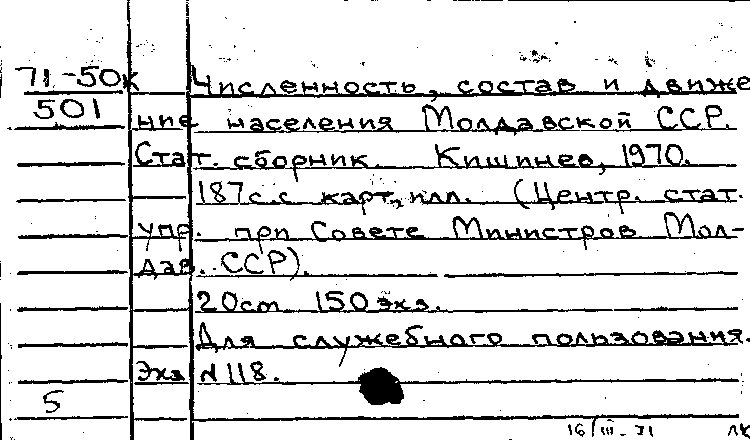 71-50к Численность, состав и движе
501 ние населения Молдавской ССР.
Стат. сборник. Кишинев, 1970.
187с. с карт., илл. (Центр. стат.
упр. при Совете Министров Мол-
дав. ССР).
20cm 150 экз.
Для служебного пользования.
Экз N 118.
5
16/III-71